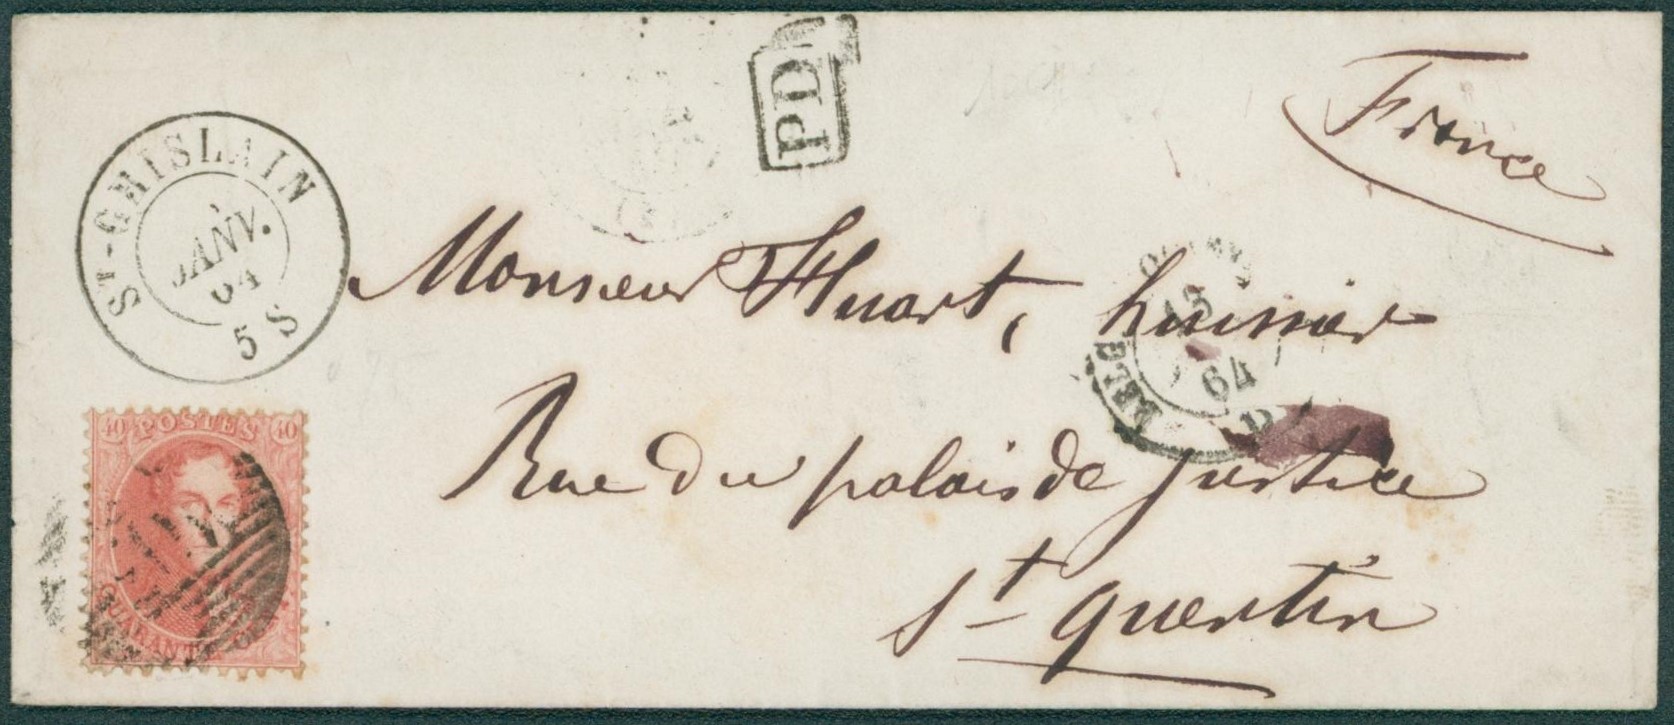 PD
France
ST-GHISLAIN
JANV.
64
5 S
Monsieur Huart, huissier
BELG
64
Rue du palais de justice
St Quentin
40 POSTES 40
QUARANTE